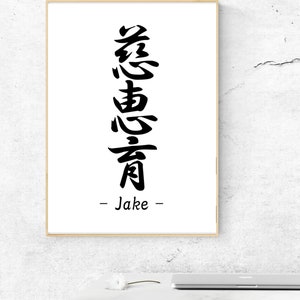 慈恵育
- Jake -